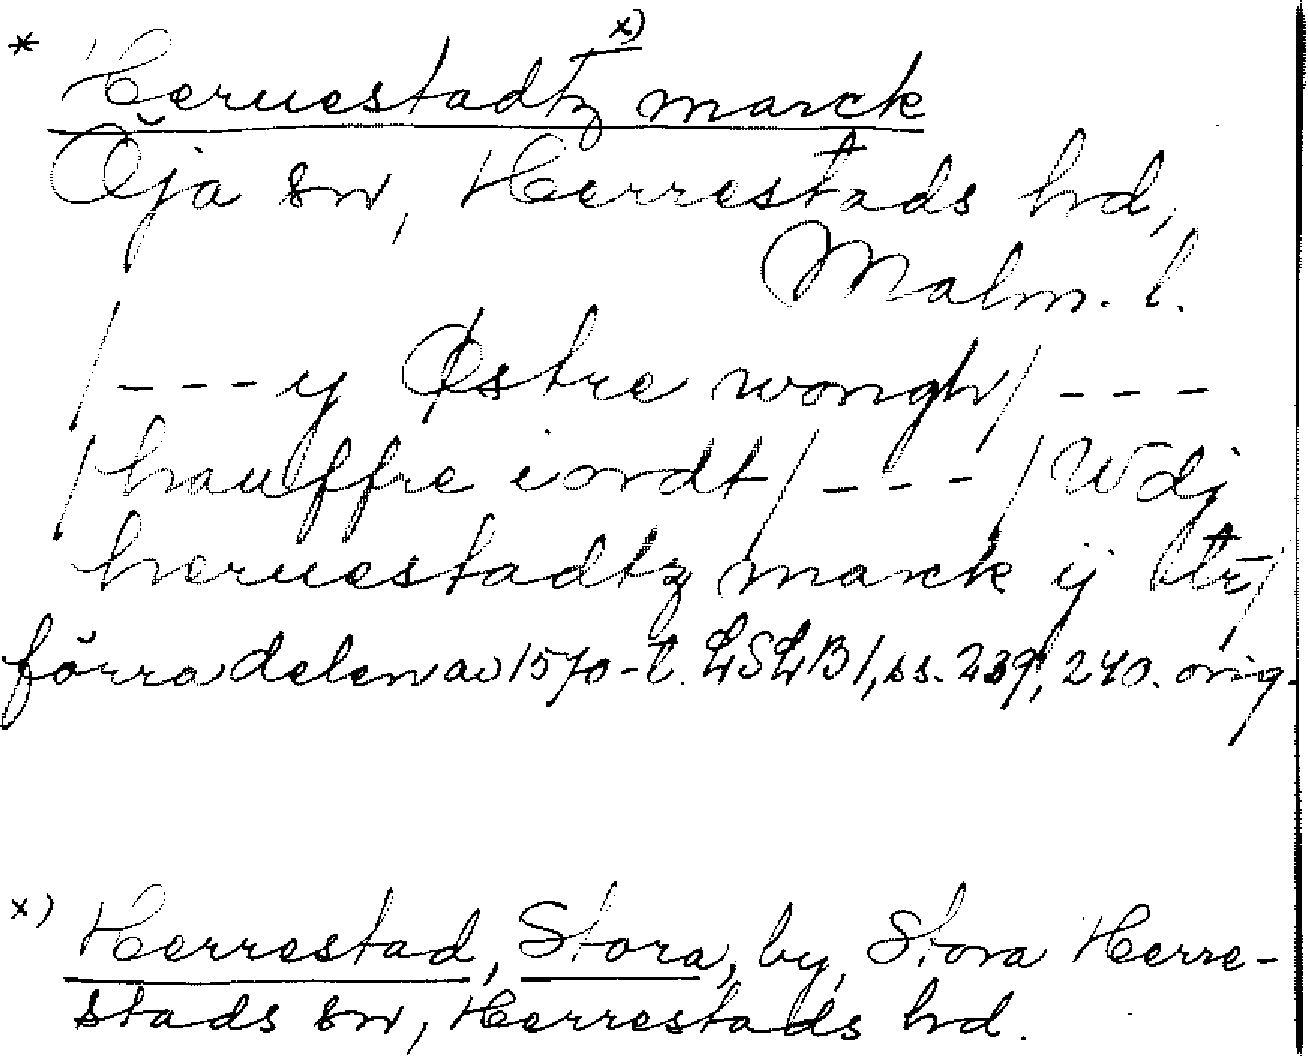 * Heruestadtz x) marck
Öja sn, Herrestads hd,
Malm. l.
/---y Østre wongh/---
/hauffre iordt/---/Wdj
heruestadtz marck ij str/
förra delen av 1570-t. LSLB 1, ss. 239, 240. orig.
x) Herrestad, Stora, by, Stora Herre-
stads sn, Herrestads hd.